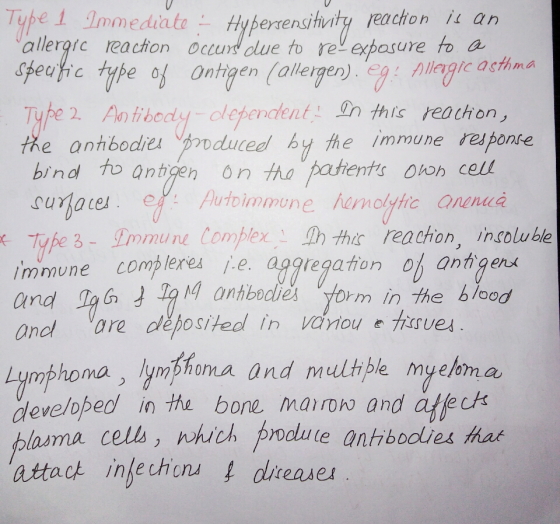 Type 1 Immediate :- Hypersensitivity reaction is an
allergic reaction occurs due to re-exposure to a
specific type of antigen (allergen). eg: Allergic asthma
Type 2 Antibody-dependent :- In this reaction,
the antibodies produced by the immune response
bind to antigen on the patient's own cell
surfaces. eg: Autoimmune hemolytic anemia
* Type 3 - Immune Complex :- In this reaction, insoluble
immune complexes i.e. aggregation of antigens
and IgG & IgM antibodies form in the blood
and are deposited in variou tissues.
Lymphoma, lymphoma and multiple myeloma
developed in the bone marrow and affects
plasma cells, which produce antibodies that
attack infections & diseases.